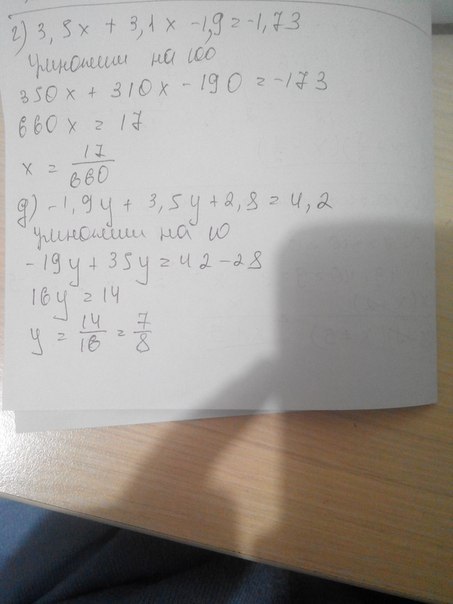 г) 3,5x + 3,1x - 1,9 = -1,73
умножим на 100
350x + 310x - 190 = -173
660x = 17
x = 17/660
д) -1,9y + 3,5y + 2,8 = 4,2
умножим на 10
-19y + 35y = 42 - 28
16y = 14
y = 14/16 = 7/8